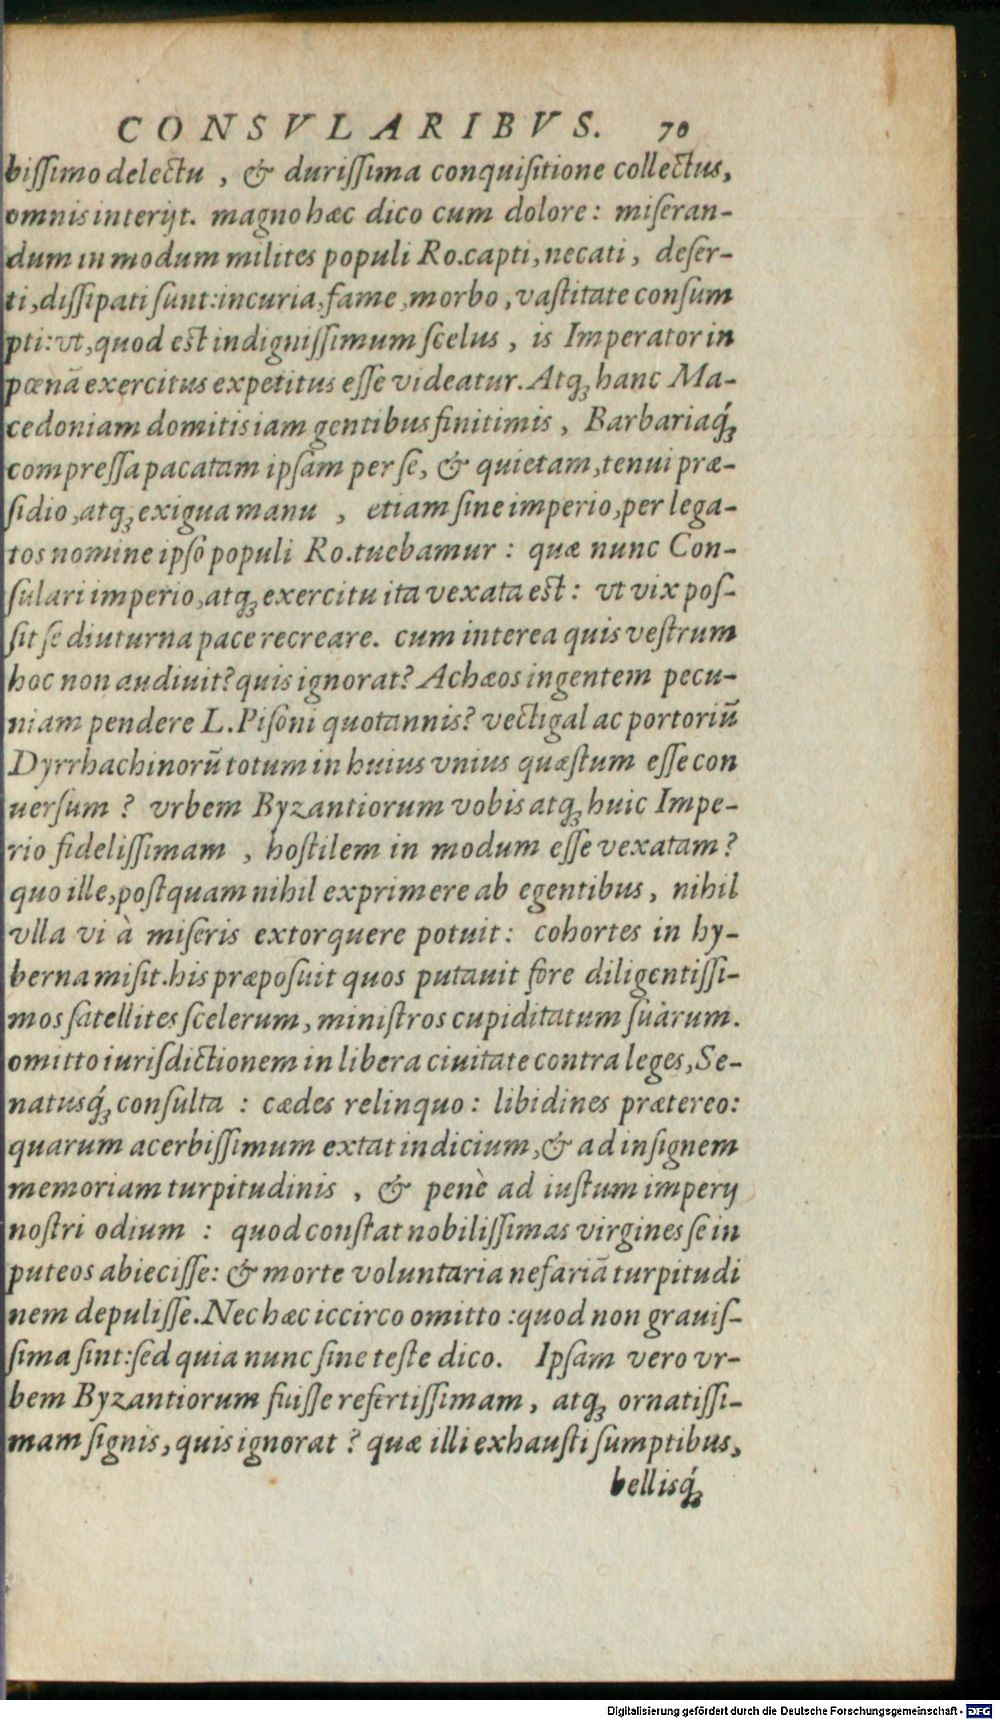 CONSVLARIBVS. 70
bissimo delectu, & durissima conquisitione collectus,
omnis interijt. magno hæc dico cum dolore: miseran-
dum in modum milites populi Ro. capti, necati, deser-
ti, dissipati sunt: incuria, fame, morbo, vastitate consum
pti: vt, quod est indignissimum scelus, is Imperator in
pœnā exercitus expetitus esse videatur. Atq; hanc Ma-
cedoniam domitis iam gentibus finitimis, Barbariaq́;
compressa pacatam ipsam per se, & quietam, tenui præ-
sidio, atq; exigua manu, etiam sine imperio, per lega-
tos nomine ipso populi Ro. tuebamur: quæ nunc Con-
sulari imperio, atq; exercitu ita vexata est: vt vix pos-
sit se diuturna pace recreare. cum interea quis vestrum
hoc non audiuit? quis ignorat? Achæos ingentem pecu-
niam pendere L. Pisoni quotannis? vectigal ac portoriū
Dyrrhachinorū totum in huius vnius quæstum esse con
uersum? vrbem Byzantiorum vobis atq; huic Impe-
rio fidelissimam, hostilem in modum esse vexatam?
quo ille, postquam nihil exprimere ab egentibus, nihil
vlla vi à miseris extorquere potuit: cohortes in hy-
berna misit. his præposuit quos putauit fore diligentissi-
mos satellites scelerum, ministros cupiditatum suarum.
omitto iurisdictionem in libera ciuitate contra leges, Se-
natusq́; consulta: cædes relinquo: libidines prætereo:
quarum acerbissimum extat indicium, & ad insignem
memoriam turpitudinis, & penè ad iustum imperij
nostri odium: quod constat nobilissimas virgines se in
puteos abiecisse: & morte voluntaria nefariā turpitudi
nem depulisse. Nec hæc iccirco omitto: quod non grauis-
sima sint: sed quia nunc sine teste dico. Ipsam vero vr-
bem Byzantiorum fuisse refertissimam, atq; ornatissi-
mam signis, quis ignorat? quæ illi exhausti sumptibus,
bellisq́;
Digitalisierung gefördert durch die Deutsche Forschungsgemeinschaft - DFG